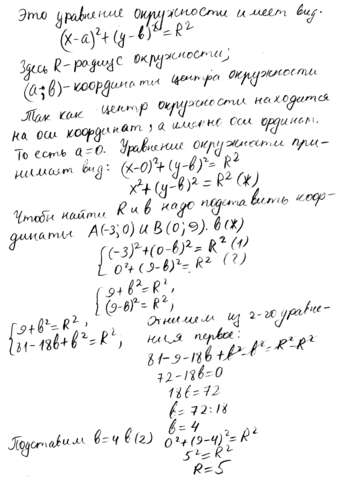 Это уравнение окружности имеет вид.
(x-a)²+(y-в)²=R²
Здесь R-радиус окружности;
(a;в)-координаты центра окружности
Так как центр окружности находится
на оси координат, а именно оси ординат.
То есть a=0. Уравнение окружности при-
нимает вид: (x-0)²+(y-в)²=R²
x²+(y-в)²=R² (*)
Чтобы найти R и в надо подставить коор-
динаты A(-3;0) и B(0;9). в (*)
{(-3)²+(0-в)²=R² (1)
{0²+(9-в)²=R² (2)
{9+в²=R²,
{(9-в)²=R²,
{9+в²=R²,
{81-18в+в²=R²,
Отнимем из 2-го уравне-
ния первое:
81-9-18в+в²-в²=R²-R²
72-18в=0
18в=72
в=72:18
в=4
Подставим в=4 в (2) 0²+(9-4)²=R²
5²=R²
R=5